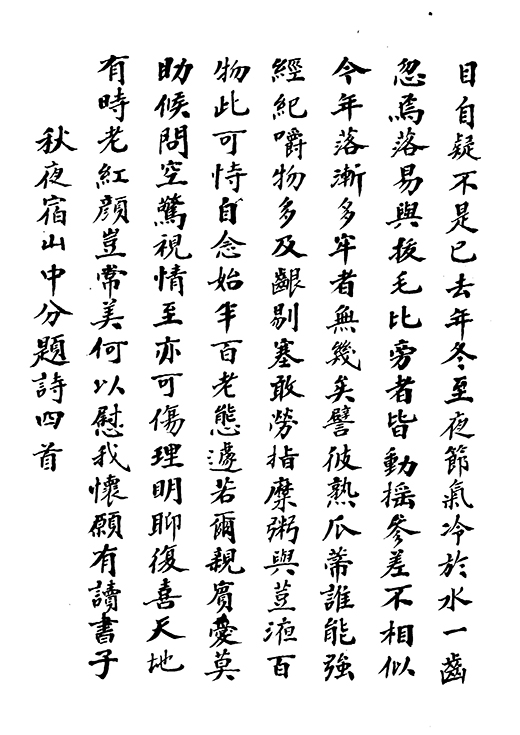 目自疑不是已去年冬至夜節氣冷於水一齒
忽焉落易與拔毛比旁者皆動搖參差不相似
今年落漸多牢者無幾矣譬彼熟瓜蒂誰能強
經紀嚼物多及齦剔塞敢勞指糜粥與荳洍百
物此可恃自念始半百老態遽若爾親賓愛莫
助候問空驚視情至亦可傷理明聊復喜天地
有時老紅顔豈常美何以慰我懷願有讀書子
秋夜宿山中分題詩四首